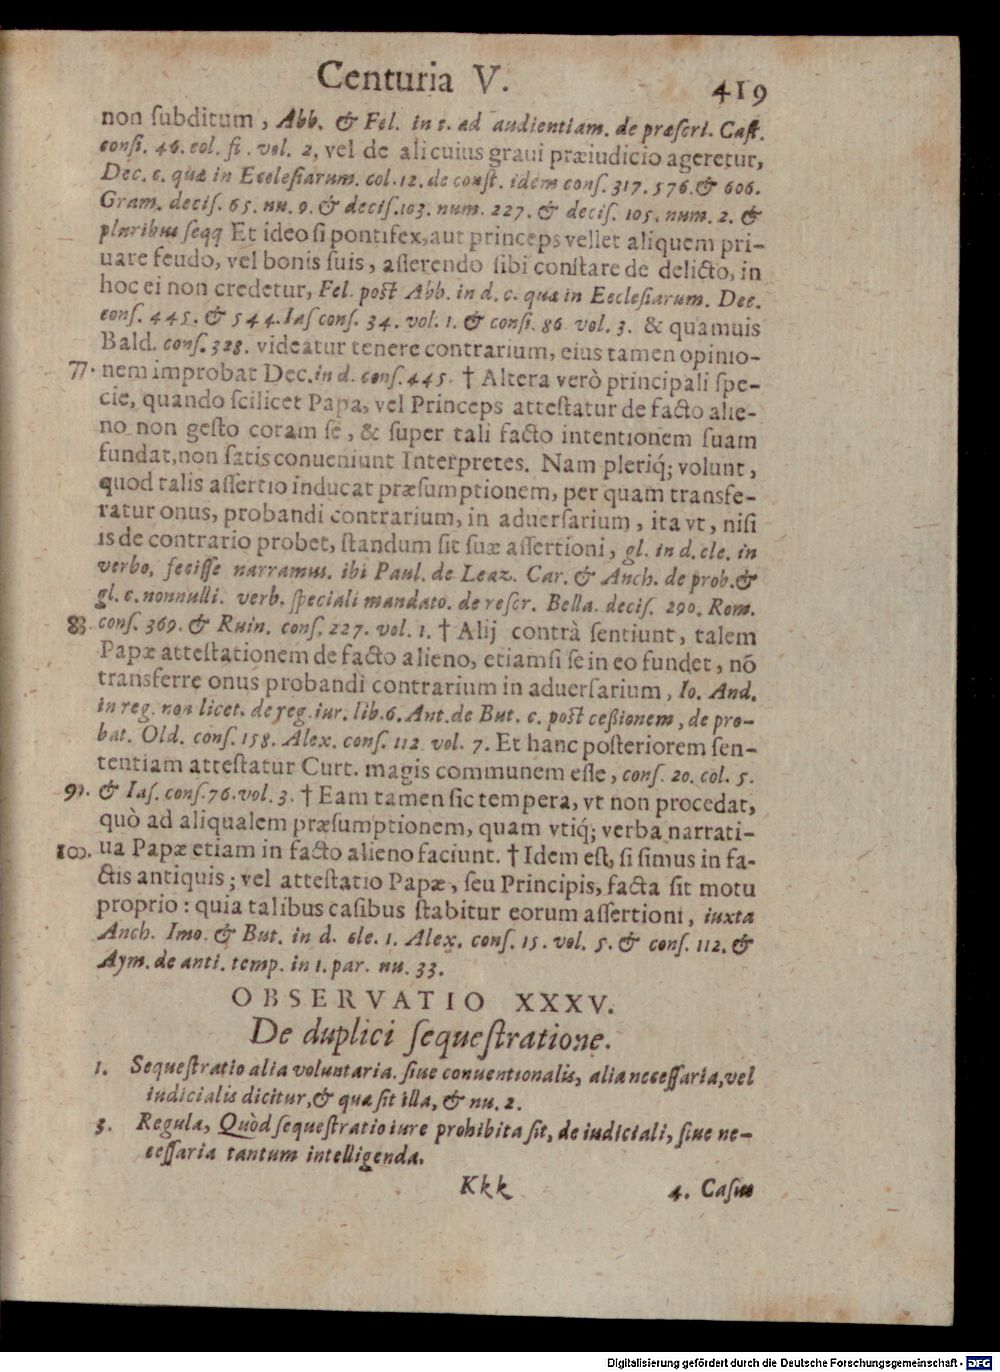 Centuria V. 419
non ſubditum, Abb. & Fel. in c. ad audientiam. de præſcri. Caſt.
conſi. 46. col. fi. vol. 2, vel de alicuius graui præiudicio ageretur,
Dec. c. quæ in Eccleſiarum. col. 12. de conſt. idem conſ. 317. 576. & 606.
Gram. deciſ. 65. nu. 9. & deciſ. 103. num. 227. & deciſ. 105. num. 2. &
pluribus ſeqq Et ideo ſi pontifex, aut princeps vellet aliquem pri-
uare feudo, vel bonis ſuis, aſſerendo ſibi conſtare de delicto, in
hoc ei non credetur, Fel. poſt Abb. in d. c. quæ in Eccleſiarum. Dec.
conſ. 445. & 544. Iaſ conſ. 34. vol. 1. & conſi. 86 vol. 3. & quamuis
Bald. conſ. 328. videatur tenere contrarium, eius tamen opinio-
77. nem improbat Dec. in d. conſ. 445. † Altera verò principali ſpe-
cie, quando ſcilicet Papa, vel Princeps atteſtatur de facto alie-
no non geſto coram ſe, & ſuper tali facto intentionem ſuam
fundat, non ſatis conueniunt Interpretes. Nam pleriq́; volunt,
quod talis aſſertio inducat præſumptionem, per quam transfe-
ratur onus, probandi contrarium, in aduerſarium, ita vt, niſi
is de contrario probet, ſtandum ſit ſuæ aſſertioni, gl. in d. cle. in
verbo, feciſſe narramus. ibi Paul. de Leaz. Car. & Anch. de prob. &
gl. c. nonnulli. verb. ſpeciali mandato. de reſcr. Bella. deciſ. 290. Rom.
88. conſ. 369. & Ruin. conſ. 227. vol. 1. † Alij contrà ſentiunt, talem
Papæ atteſtationem de facto alieno, etiamſi ſe in eo fundet, nõ
transferre onus probandi contrarium in aduerſarium, Io. And.
in reg. non licet. de reg. iur. lib. 6. Ant. de But. c. poſt ceßionem, de pro-
bat. Old. conſ. 158. Alex. conſ. 112 vol. 7. Et hanc poſteriorem ſen-
tentiam atteſtatur Curt. magis communem eſſe, conſ. 20. col. 5.
99. & Iaſ. conſ. 76. vol. 3. † Eam tamen ſic tempera, vt non procedat,
quò ad aliqualem præſumptionem, quam vtiq́; verba narrati-
100. ua Papæ etiam in facto alieno faciunt. † Idem eſt, ſi ſimus in fa-
ctis antiquis; vel atteſtatio Papæ, ſeu Principis, facta ſit motu
proprio: quia talibus caſibus ſtabitur eorum aſſertioni, iuxta
Anch. Imo. & But. in d. cle. 1. Alex. conſ. 15. vol. 5. & conſ. 112. &
Aym. de anti. temp. in 1. par. nu. 33.
OBSERVATIO XXXV.
De duplici ſequeſtratione.
1. Sequeſtratio alia voluntaria. ſiue conuentionalis, alia neceſſaria, vel
iudicialis dicitur, & quæ ſit illa, & nu. 2.
3. Regula, Quòd ſequeſtratio iure prohibita ſit, de iudiciali, ſiue ne-
ceſſaria tantum intelligenda.
Kkk 4. Caſus
Digitalisierung gefördert durch die Deutsche Forschungsgemeinschaft - DFG